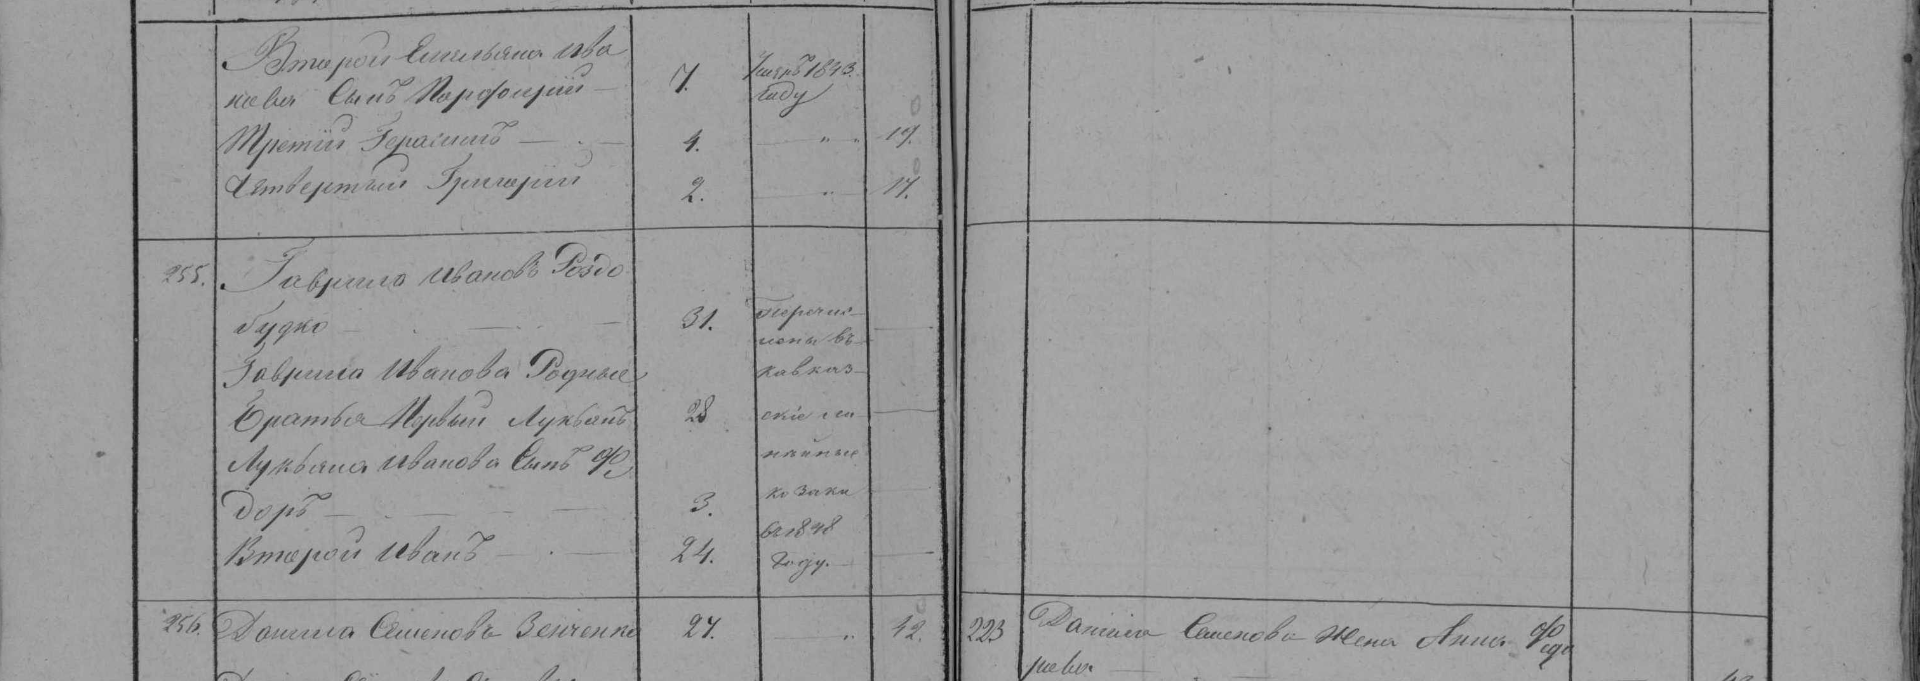 Второй Емельяна Ива
нова Сынъ Порфирий 7. Умеръ 1843. году
Третiй Герасимъ 4. " 19.
Четвертый Григорiй 2. " 17.
255. Гаврило Ивановъ Роздо
будко 31. перечис
лены въ
Гаврила Иванова Родные кавказ
братья Первый Лукьянъ 28 скiе ли
Лукьяна Иванова Сынъ Фе нейные
доръ 3. козаки
въ 1848
Второй Иванъ 24. году.
256. Данило Семеновъ Зенченко 27. " 42. 223 Данила Семенова жена Анна Федо
рова